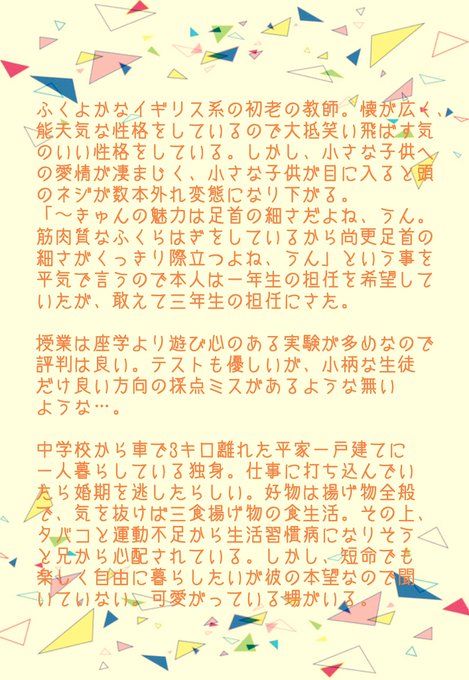 ふくよかなイギリス系の初老の教師。懐が広く、
能天気な性格をしているので大抵笑い飛ばす気
のいい性格をしている。しかし、小さな子供へ
の愛情が凄まじく、小さな子供が目に入ると頭
のネジが数本外れ変態になり下がる。
「～きゅんの魅力は足首の細さだよね、うん。
筋肉質なふくらはぎをしているから尚更足首の
細さがくっきり際立つよね、うん」という事を
平気で言うので本人は一年生の担任を希望して
いたが、敢えて三年生の担任にさた。
授業は座学より遊び心のある実験が多めなので
評判は良い。テストも優しいが、小柄な生徒
だけ良い方向の採点ミスがあるような無い
ような…。
中学校から車で3キロ離れた平家一戸建てに
一人暮らしている独身。仕事に打ち込んでい
たら婚期を逃したらしい。好物は揚げ物全般
で、気を抜けば三食揚げ物の食生活。その上、
タバコと運動不足から生活習慣病になりそう
と兄から心配されている。しかし、短命でも
楽しく自由に暮らしたいが彼の本望なので聞
いていない。可愛がっている甥がいる。